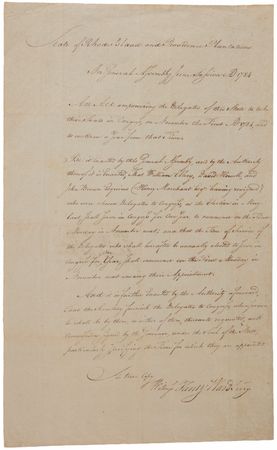 State of Rhode Island and Providence Plantations
In General Assembly June Session AD 1784
An Act empowering the Delegates of this State to take
their Seats in Congress on November the first AD 1784 and
to continue a Year from that Time
Be it enacted by this General Assembly and by the Authority
thereof it is enacted, That William Ellery, David Howell, and
John Brown Esquires (Henry Marchant Esq. having resigned)
who were chosen Delegates to Congress at the Election in May
last, shall serve in Congress for one Year to commence on the First
Monday in November next, and that the Time of serving of
the Delegates who shall hereafter be annually elected to serve in
Congress for Year, shall commence on the First Monday in
November next ensuing their Appointment.
And it is further enacted by the Authority aforesaid,
That the
to shall be by them, or either of them, thereunto requested, with
Commissions signed by the Governor, under the Seal of the State,
particularly specifying the Time for which they are appointed
A true Copy
Witness Henry Ward Secry